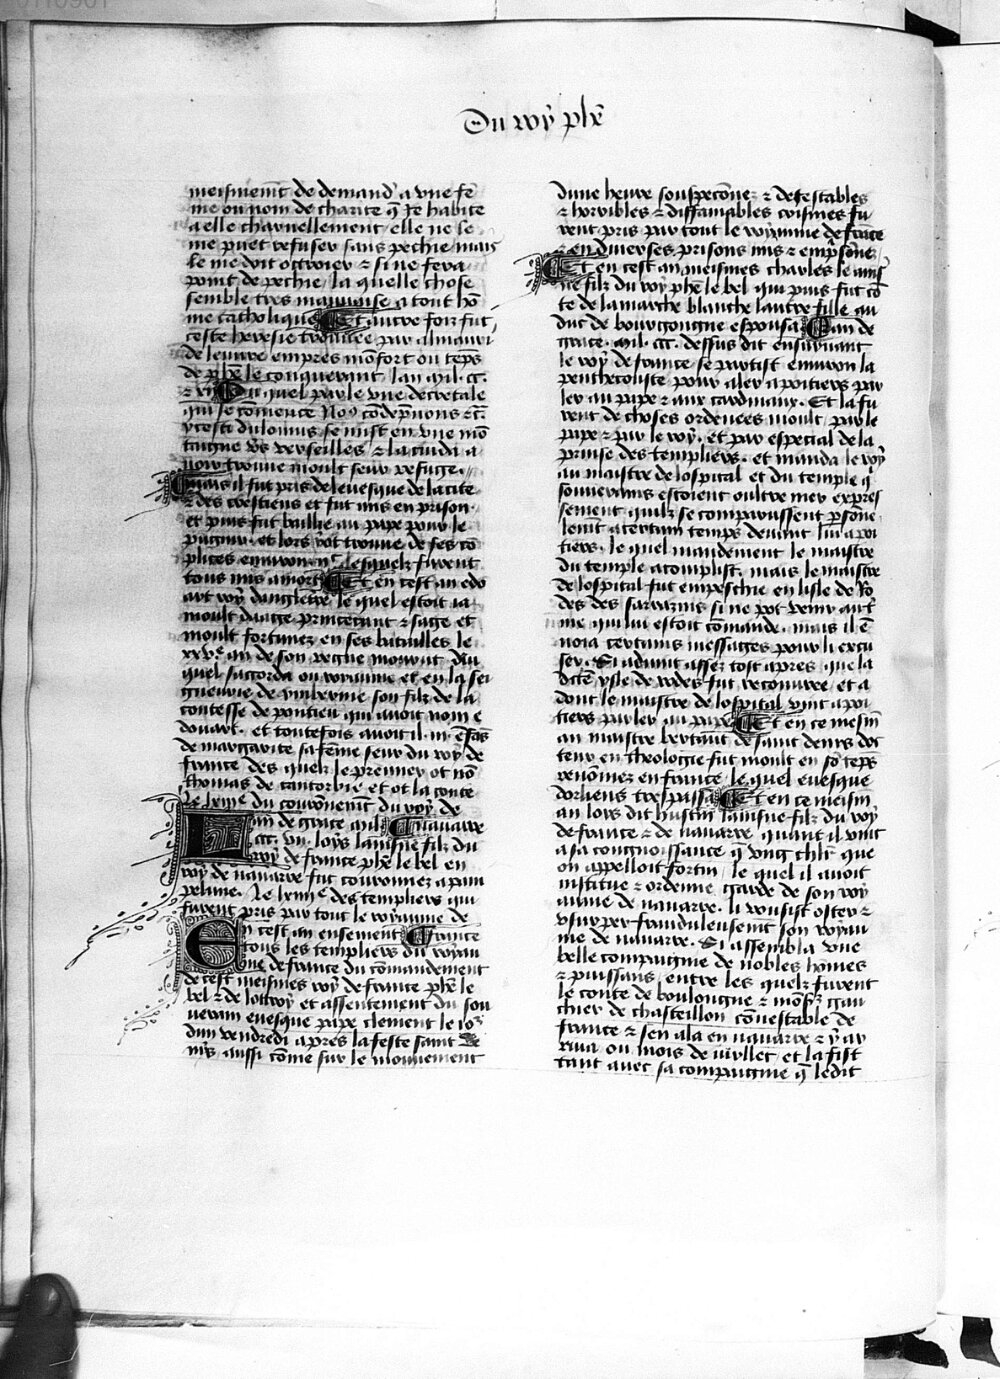 Du roy phē
meismemt de demand' a vne fē
me ou nom de charite q̄ Je habite
a elle charnellement elle ne le
me puet refuser sans pechie mais
le me doit octroier ⁊ si ne fera
point de pechie. la quelle chose
semble tres mauuaise a tout hō
me catholique Et autre foiz fut
ceste heresie trouuee par almauri
de leuure empres mōfort ou teps
de phē le conquerant lan mil. cc.
Du quel parle vne decretale
qui se cōmence Nos cōdepnons ⁊c̄
ycesti dulcinus se mist en vne mō
taigne vs̄ verseilles ⁊ la cuida a
uoir trouue moult seur refuge.
mais il fut pris de leuesque de la cite
⁊ des crestiens et fut mis en prison.
et puis fut baillie au pape pour le
pugnir. et lors rot trouue de ses cō
plices enuiron lesquelx furent
tous mis a mort Et en cest an edo
art roy dangletre le quel estoit ia
moult daage princeant ⁊ sage et
moult fortunez en ses batailles le
xxvᵉ an de son regne mourut du
quel succeda ou royaume et en la sei
gneurie de ymbernie son filz de la
contesse de pontieu qui auoit nom e
douart. et toutefois auoit il .iii. ēfās
de margarite sa fēme seur du roy de
france des quelx le premier ot nō
thomas de cantorbie et ot la conte
le lxiiiᵉ du couronemt du roy de
Lan de grace mil Nauarre
.ccc. vii. loys lainsne filz du
roy de france phē le bel en
roy de nauarre fut couronnez a pam
pelune. Le lxiiiiᵉ des templiers qui
furent pris par tout le royaume de
En cest an ensement France
tous les templiers du royau
me de france du cōmandement
de cest meismes roy de france phē le
bel ⁊ de lottroy et assentement du sou
uerain euesque pape clement le ior
dun vendredi apres la feste saint de
nys aussi cōme sur le mouuement
dune heure souspeconez ⁊ detestables
⁊ horribles ⁊ diffamables crismes fu
rent pris par tout le royaume de frāce
⁊ en diuerses prisons mis ⁊ emprisonez
Et en cest an meismes charles le ains
ne filz du roy phē le bel qui puis fut cō
te de la marche blanche lautre fille au
duc de bourgongne espousa Lan de
grace .mil. ccc. dessus dit ensuiuant
le roy de france se partist enuiron la
penthecouste pour aler a poitiers par
ler au pape ⁊ aux cardinaux. Et la fu
rent de choses ordenees moult par le
pape ⁊ par le roy. et par especial de la
prinse des templiers. et manda le roy
au maistre de lospital et du temple q̄
souuerains estoient oultre mer expres
sement quilz se comparussent psōne
lemt a certain temps deuant lui a poi
tiers. le quel mandement le maistre
du temple acomplist. mais le maistre
de lospital fut empeschie en lisle de Ro
des des sarrazins si ne pot venir au t̄
me qui lui estoit cōmande. mais il ē
uoia certains messages pour li excu
ser. Si aduint assez tost apres que la
dcē ysle de rodes fut recouuree et a
dont le maistre de lospital vint a poi
tiers parler au pape Et en ce mesm
an maistre bertaut de saint denis doc
teur en theologie fut moult en sō teps
renōmez en france. le quel euesque
dorliens trespassa Et en ce meism
an loys dit hustin lainsne filz du roy
de france ⁊ de nauarre quant il vint
a sa congnoissance q̄ vng chlr̄ que
on appelloit fortin le quel il auoit
institue ⁊ ordene garde de son roy
aume de nauarre. li vousist oster ⁊
vsurper frauduleusemt son royau
me de nauarre. Si assembla vne
belle compaignie de nobles hōmes
⁊ puissans, entre les quelx furent
le conte de boulongne ⁊ mōsr gau
chier de chasteillon cōnestable de
france ⁊ sen ala en nauarre ⁊ y ar
riua ou mois de iuillet. et la fist
tant auec sa compaignie q̄ ledit